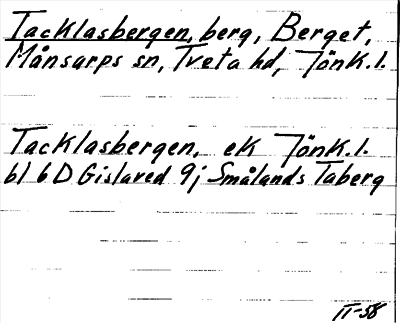 Tacklasbergen, berg, Berget,
Månsarps sn, Tveta hd, Jönk. l.
Tacklasbergen, ek Jönk. l.
bl 6 D Gislaved 9j Smålands Taberg
II-58